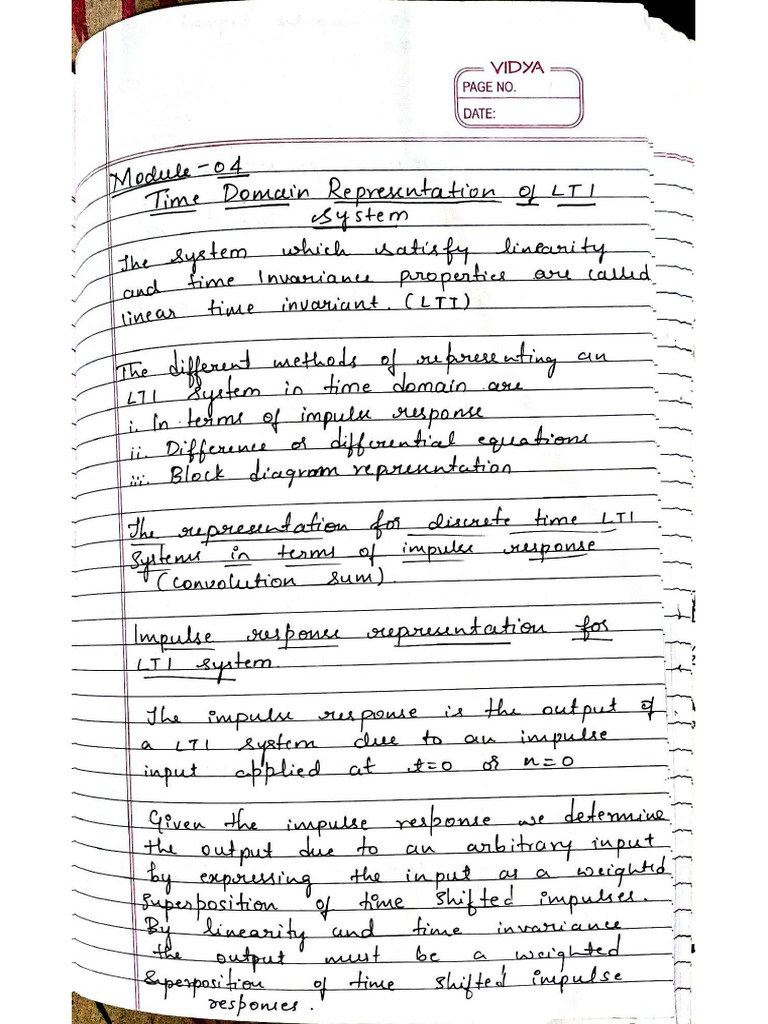 VIDYA
PAGE NO.
DATE:
Module-04
Time Domain Representation of LTI
System
The system which satisfy linearity
and time Invariance properties are called
linear time invariant. (LTI)
The different methods of representing an
LTI System in time domain are
i. In terms of impulse response
ii. Difference or differential equations
iii. Block diagram representation
The representation for discrete time LTI
Systems in terms of impulse response
(convolution sum).
Impulse response representation for
LTI system.
The impulse response is the output of
a LTI system due to an impulse
input applied at t=0 or n=0
Given the impulse response we determine
the output due to an arbitrary input
by expressing the input as a weighted
superposition of time shifted impulses.
By linearity and time invariance
the output must be a weighted
superposition of time shifted impulse
responses.